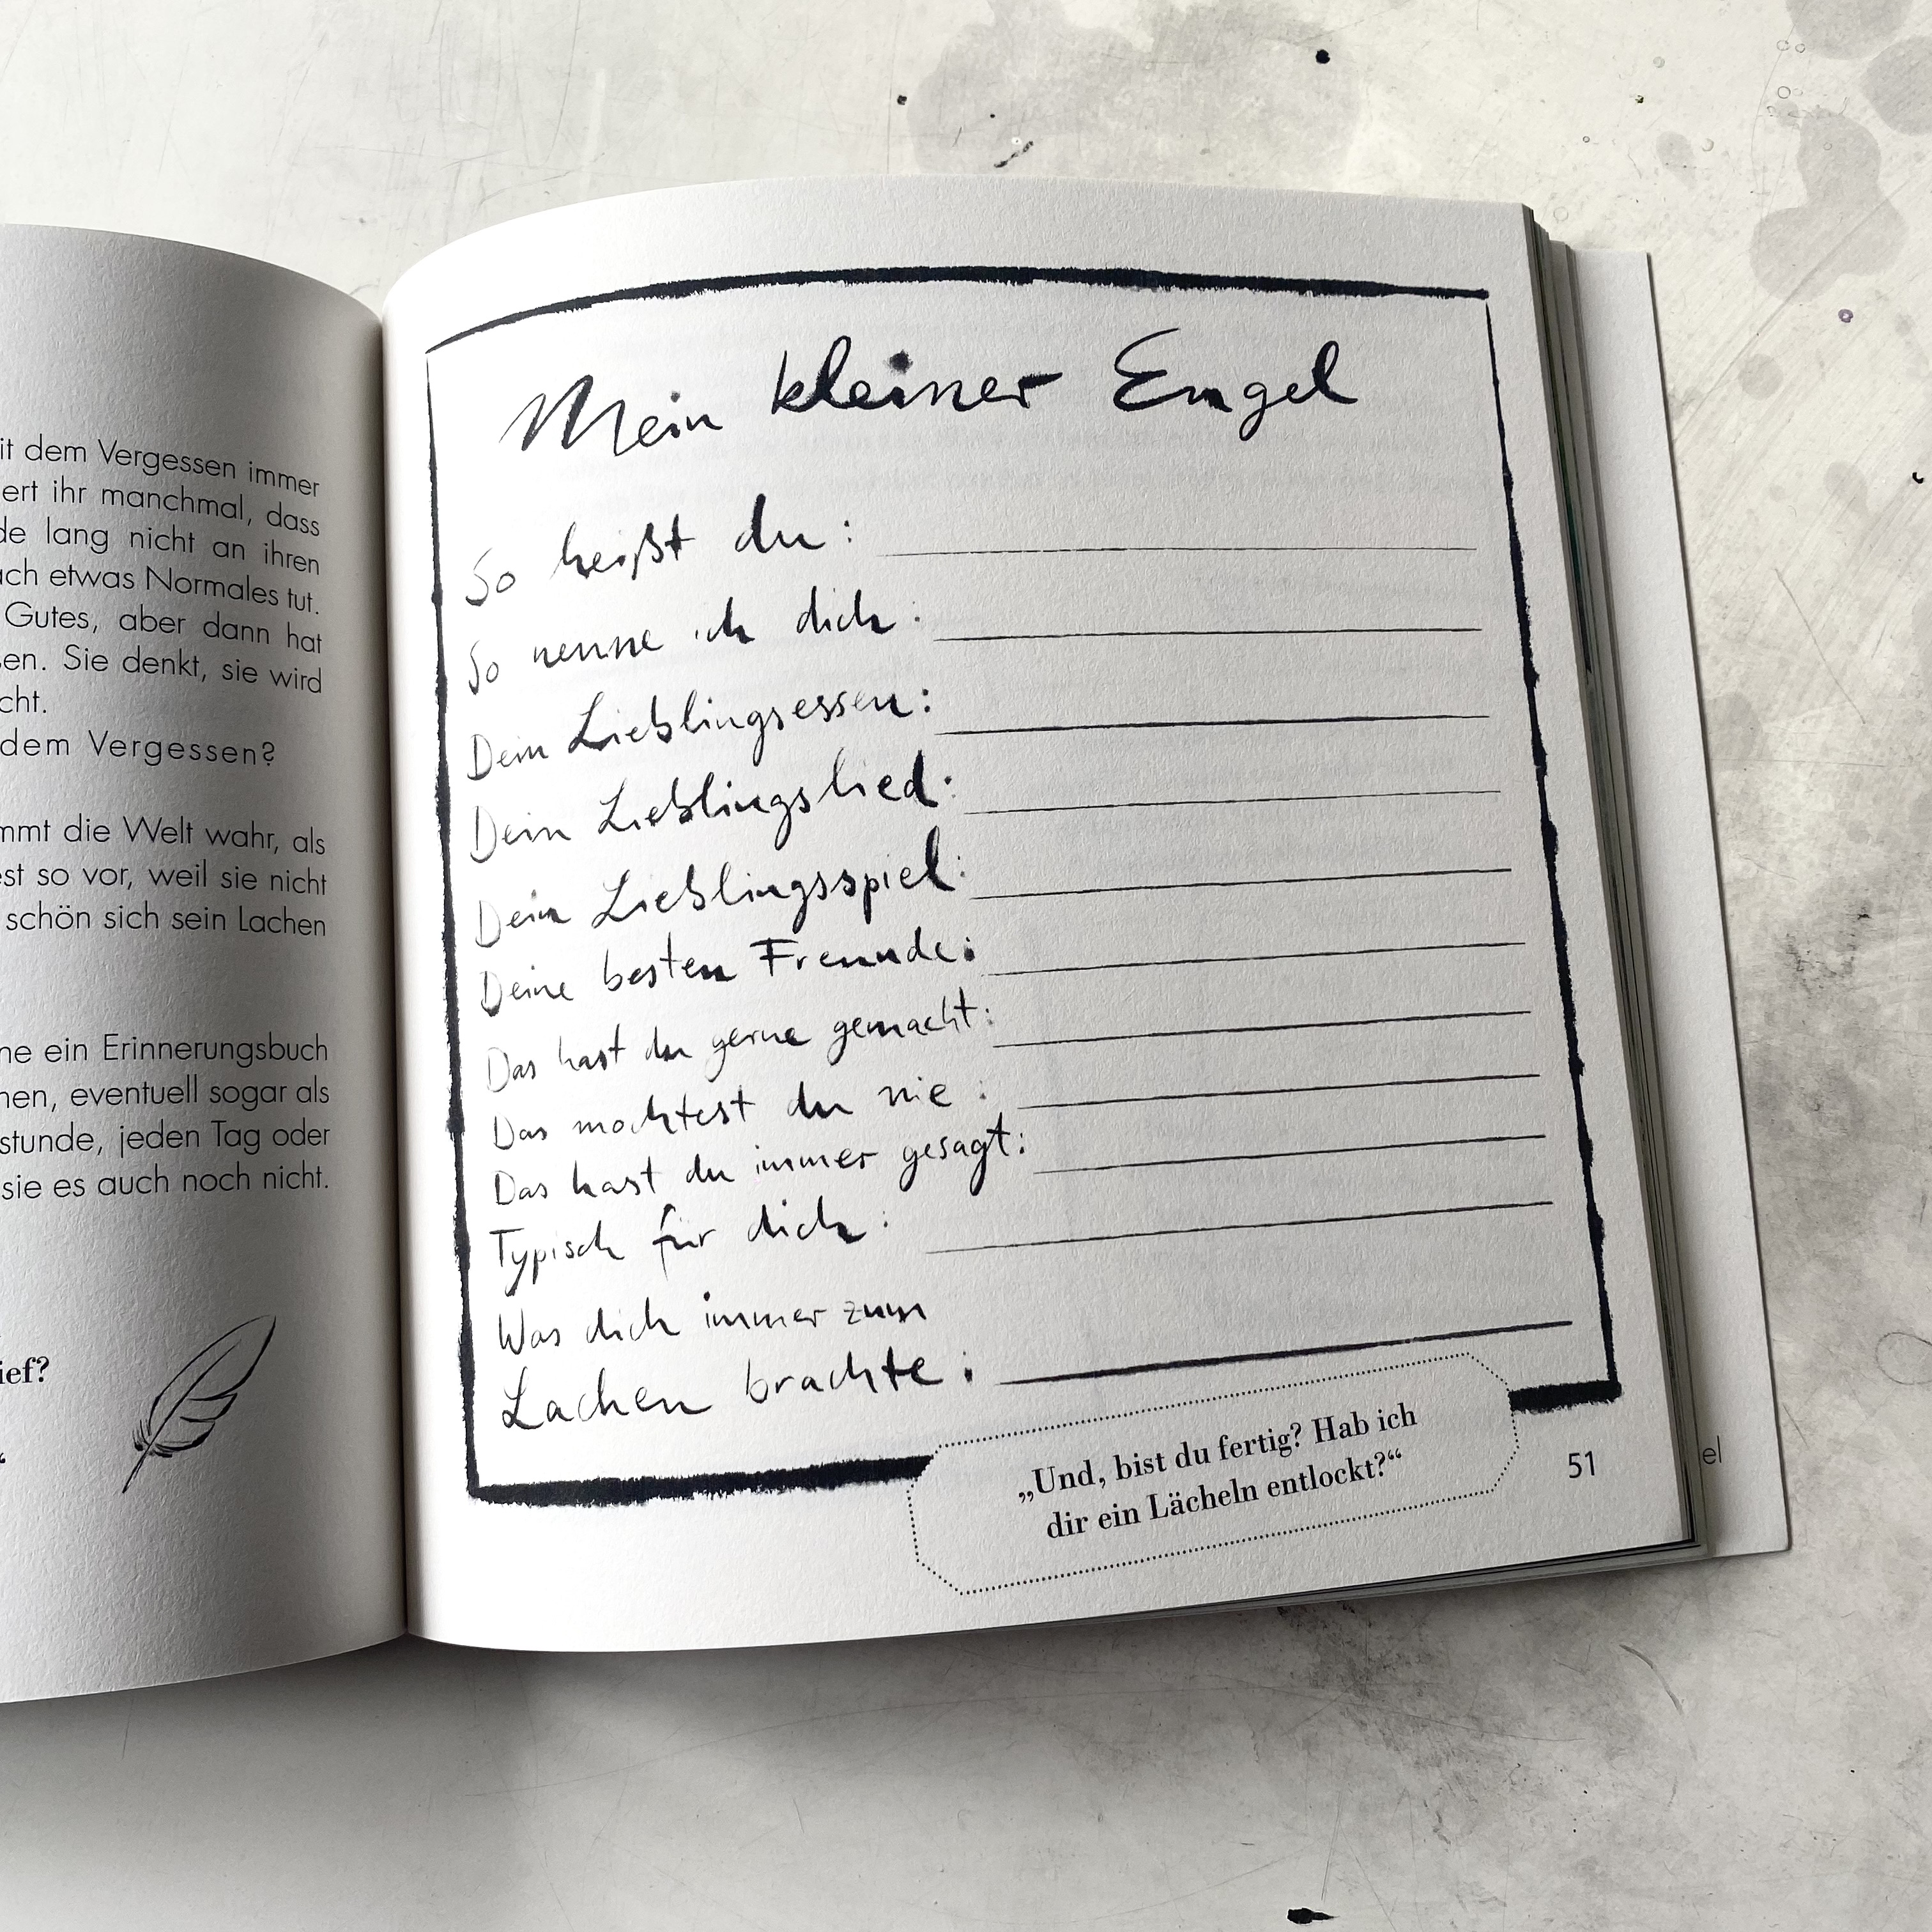 it dem Vergessen immer
ert ihr manchmal, dass
de lang nicht an ihren
ach etwas Normales tut.
Gutes, aber dann hat
sen. Sie denkt, sie wird
cht.
dem Vergessen?
mmt die Welt wahr, als
est so vor, weil sie nicht
schön sich sein Lachen
ne ein Erinnerungsbuch
hen, eventuell sogar als
stunde, jeden Tag oder
sie es auch noch nicht.
ief?
“
Mein kleiner Engel
So heißt du:
So nenne ich dich:
Dein Lieblingsessen:
Dein Lieblingslied:
Dein Lieblingsspiel:
Deine besten Freunde:
Das hast du gerne gemacht:
Das mochtest du nie:
Das hast du immer gesagt:
Typisch für dich:
Was dich immer zum
Lachen brachte:
„Und, bist du fertig? Hab ich
dir ein Lächeln entlockt?“
51
el